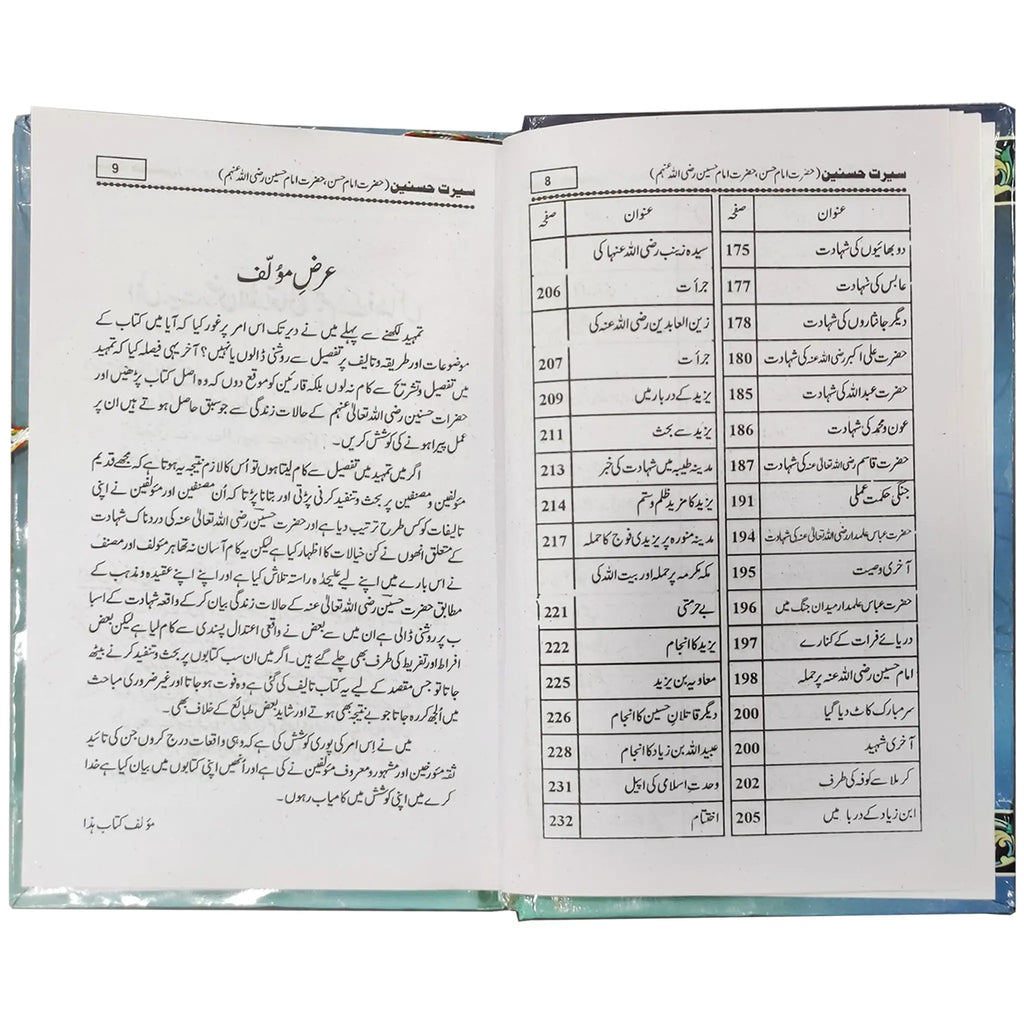 8
سیرت حسنین (حضرت امام حسن، حضرت امام حسین رضی اللہ عنہم)
عنوان صفحہ
دو بھائیوں کی شہادت 175
عابس کی شہادت 177
دیگر جانثاروں کی شہادت 178
حضرت علی اکبر رضی اللہ عنہ کی شہادت 180
حضرت عبداللہ کی شہادت 185
عون و محمد کی شہادت 186
حضرت قاسم رضی اللہ تعالیٰ عنہ کی شہادت 187
جنگی حکمت عملی 191
حضرت عباس علمدار رضی اللہ تعالیٰ عنہ کی شہادت 194
آخری وصیت 195
حضرت عباس علمدار میدان جنگ میں 196
دریائے فرات کے کنارے 197
امام حسین رضی اللہ عنہ پر حملہ 198
سر مبارک کاٹ دیا گیا 200
آخری شہید 200
کربلا سے کوفہ کی طرف 202
ابن زیاد کے دربا میں 205
عنوان صفحہ
سیدہ زینب رضی اللہ عنہا کی
جرأت 206
زین العابدین رضی اللہ عنہ کی
جرأت 207
یزید کے دربار میں 209
یزید سے بحث 211
مدینہ طیبہ میں شہادت کی خبر 213
یزید کا مزید ظلم و ستم 214
مدینہ منورہ پر یزیدی فوج کا حملہ 217
مکہ مکرمہ پر حملہ اور بیت اللہ کی
بے حرمتی 221
یزید کا انجام 222
معاویہ بن یزید 225
دیگر قاتلانِ حسین کا انجام 226
عبیداللہ بن زیاد کا انجام 228
وحدتِ اسلامی کی اپیل 231
اختتام 232
9
سیرت حسنین (حضرت امام حسن، حضرت امام حسین رضی اللہ عنہم)
عرض مؤلّف
تمہید لکھنے سے پہلے میں نے دیر تک اس امر پر غور کیا کہ آیا میں کتاب کے
موضوعات اور طریقہ و تالیف پر تفصیل سے روشنی ڈالوں یا نہیں؟ آخر یہی فیصلہ کیا کہ تمہید
میں تفصیل و تشریح سے کام نہ لوں بلکہ قارئین کو موقع دوں کہ وہ اصل کتاب پڑھیں اور
حضرات حسنین رضی اللہ تعالیٰ عنہم کے حالات زندگی سے جو سبق حاصل ہوتے ہیں ان پر
عمل پیرا ہونے کی کوشش کریں۔
اگر میں تمہید میں تفصیل سے کام لیتا ہوں تو اُس کا لازم نتیجہ یہ ہوتا ہے کہ مجھے قدیم
مؤلفین و مصنفین پر بحث و تنقید کرنی پڑتی اور بتانا پڑتا کہ اُن مصنفین اور مؤلفین نے اپنی
تالیفات کو کس طرح ترتیب دیا ہے اور حضرت حسینؓ رضی اللہ تعالیٰ عنہ کی دردناک شہادت
کے متعلق انھوں نے کن خیالات کا اظہار کیا ہے لیکن یہ کام آسان نہ تھا ہر مؤلف اور مصنف
نے اس بارے میں اپنے لیے علیحدہ راستہ تلاش کیا ہے اور اپنے اپنے عقیدہ و مذہب کے
مطابق حضرت حسینؓ رضی اللہ تعالیٰ عنہ کے حالات زندگی بیان کر کے واقعہ شہادت کے اسبا
ب پر روشنی ڈالی ہے ان میں سے بعض نے واقعی اعتدال پسندی سے کام لیا ہے لیکن بعض
افراط اور تفریط کی طرف بھی چلے گئے ہیں۔ اگر میں ان سب کتابوں پر بحث و تنقید کرنے بیٹھ
جاتا تو جس مقصد کے لیے یہ کتاب تالیف کی گئی ہے وہ فوت ہو جاتا اور غیر ضروری مباحث
میں اُلجھ کر رہ جاتا جو بے نتیجہ بھی ہوتے اور شاید بعض طبائع کے خلاف بھی۔
میں نے اِس امر کی پوری کوشش کی ہے کہ وہی واقعات درج کروں جن کی تائید
ثقہ مؤرخین اور مشہور و معروف مؤلفین نے کی ہے اور اُنھیں اپنی کتابوں میں بیان کیا ہے خدا
کرے میں اپنی کوشش میں کامیاب رہوں۔
مؤلف کتاب ہذا